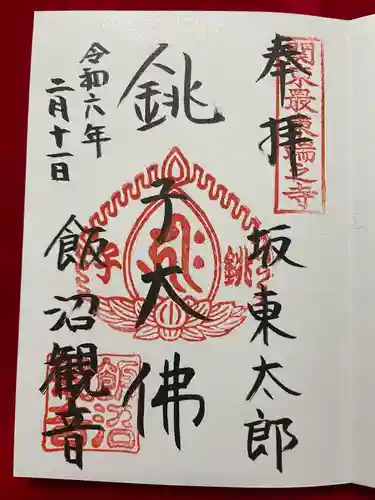 奉拝
関東最東端之寺
坂東太郎
銚子大佛
銚子
飯沼観音
令和六年
二月十一日